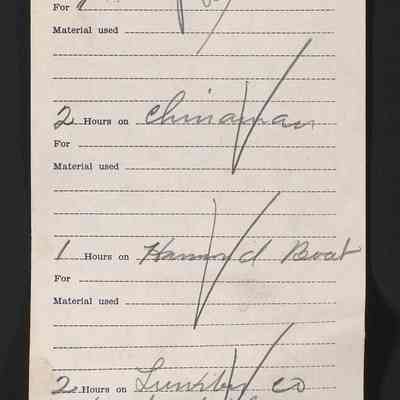 For
Material used
2 Hours on Chinaman
For
Material used
1 Hours on Hammond Boat
For
Material used
2 Hours on Co